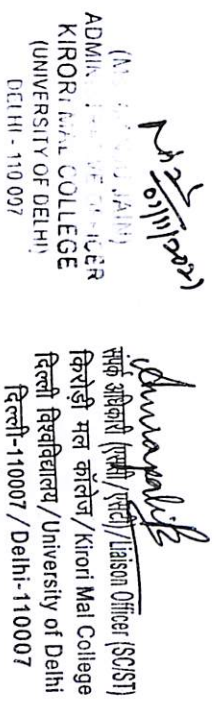 01/11/2021
JAIN)
KIRORI MAL COLLEGE
(UNIVERSITY OF DELHI)
DELHI - 110 007
Amrapali
संपर्क अधिकारी (एससी/एसटी)/Liaison Officer (SC/ST)
किरोड़ी मल कॉलेज/Kirori Mal College
दिल्ली विश्वविद्यालय/University of Delhi
दिल्ली-110007/Delhi-110007